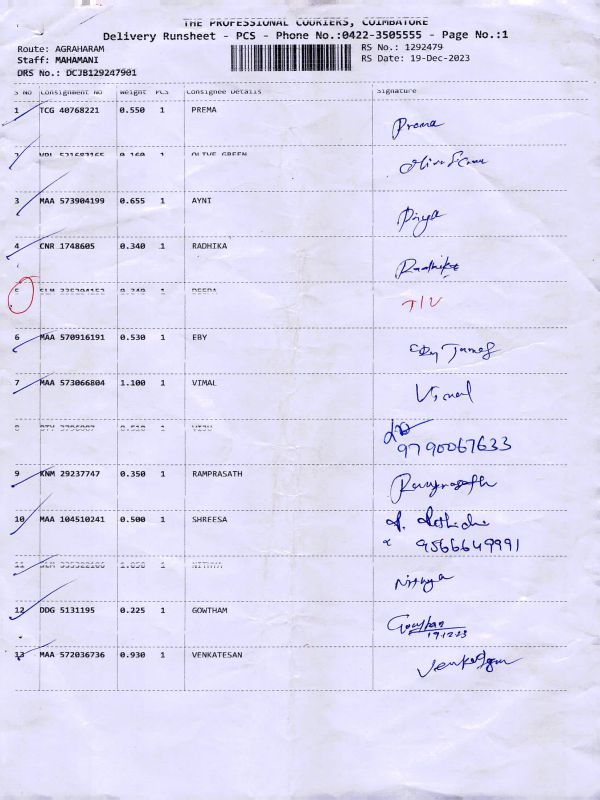 THE PROFESSIONAL COURIERS, COIMBATORE
Delivery Runsheet - PCS - Phone No.:0422-3505555 - Page No.:1
Route: AGRAHARAM RS No.: 1292479
Staff: MAHAMANI RS Date: 19-Dec-2023
DRS No.: DCJB129247901
S No Consignment No Weight PCS Consignee Details Signature
1 TCG 40768221 0.550 1 PREMA Prema
2 1 OLIVE GREEN
3 MAA 573904199 0.655 1 AYNI Priya
4 CNR 1748605 0.340 1 RADHIKA Radhika
5 1 DEEPA
6 MAA 570916191 0.530 1 EBY Eby James
7 MAA 573066804 1.100 1 VIMAL Vimal
8 1 VIJU 9790067633
9 KNM 29237747 0.350 1 RAMPRASATH Ramprasath
10 MAA 104510241 0.500 1 SHREESA
9566649991
11 1 NITHYA Nithya
12 DDG 5131195 0.225 1 GOWTHAM Gowtham
19.12.23
13 MAA 572036736 0.930 1 VENKATESAN Venkatesan